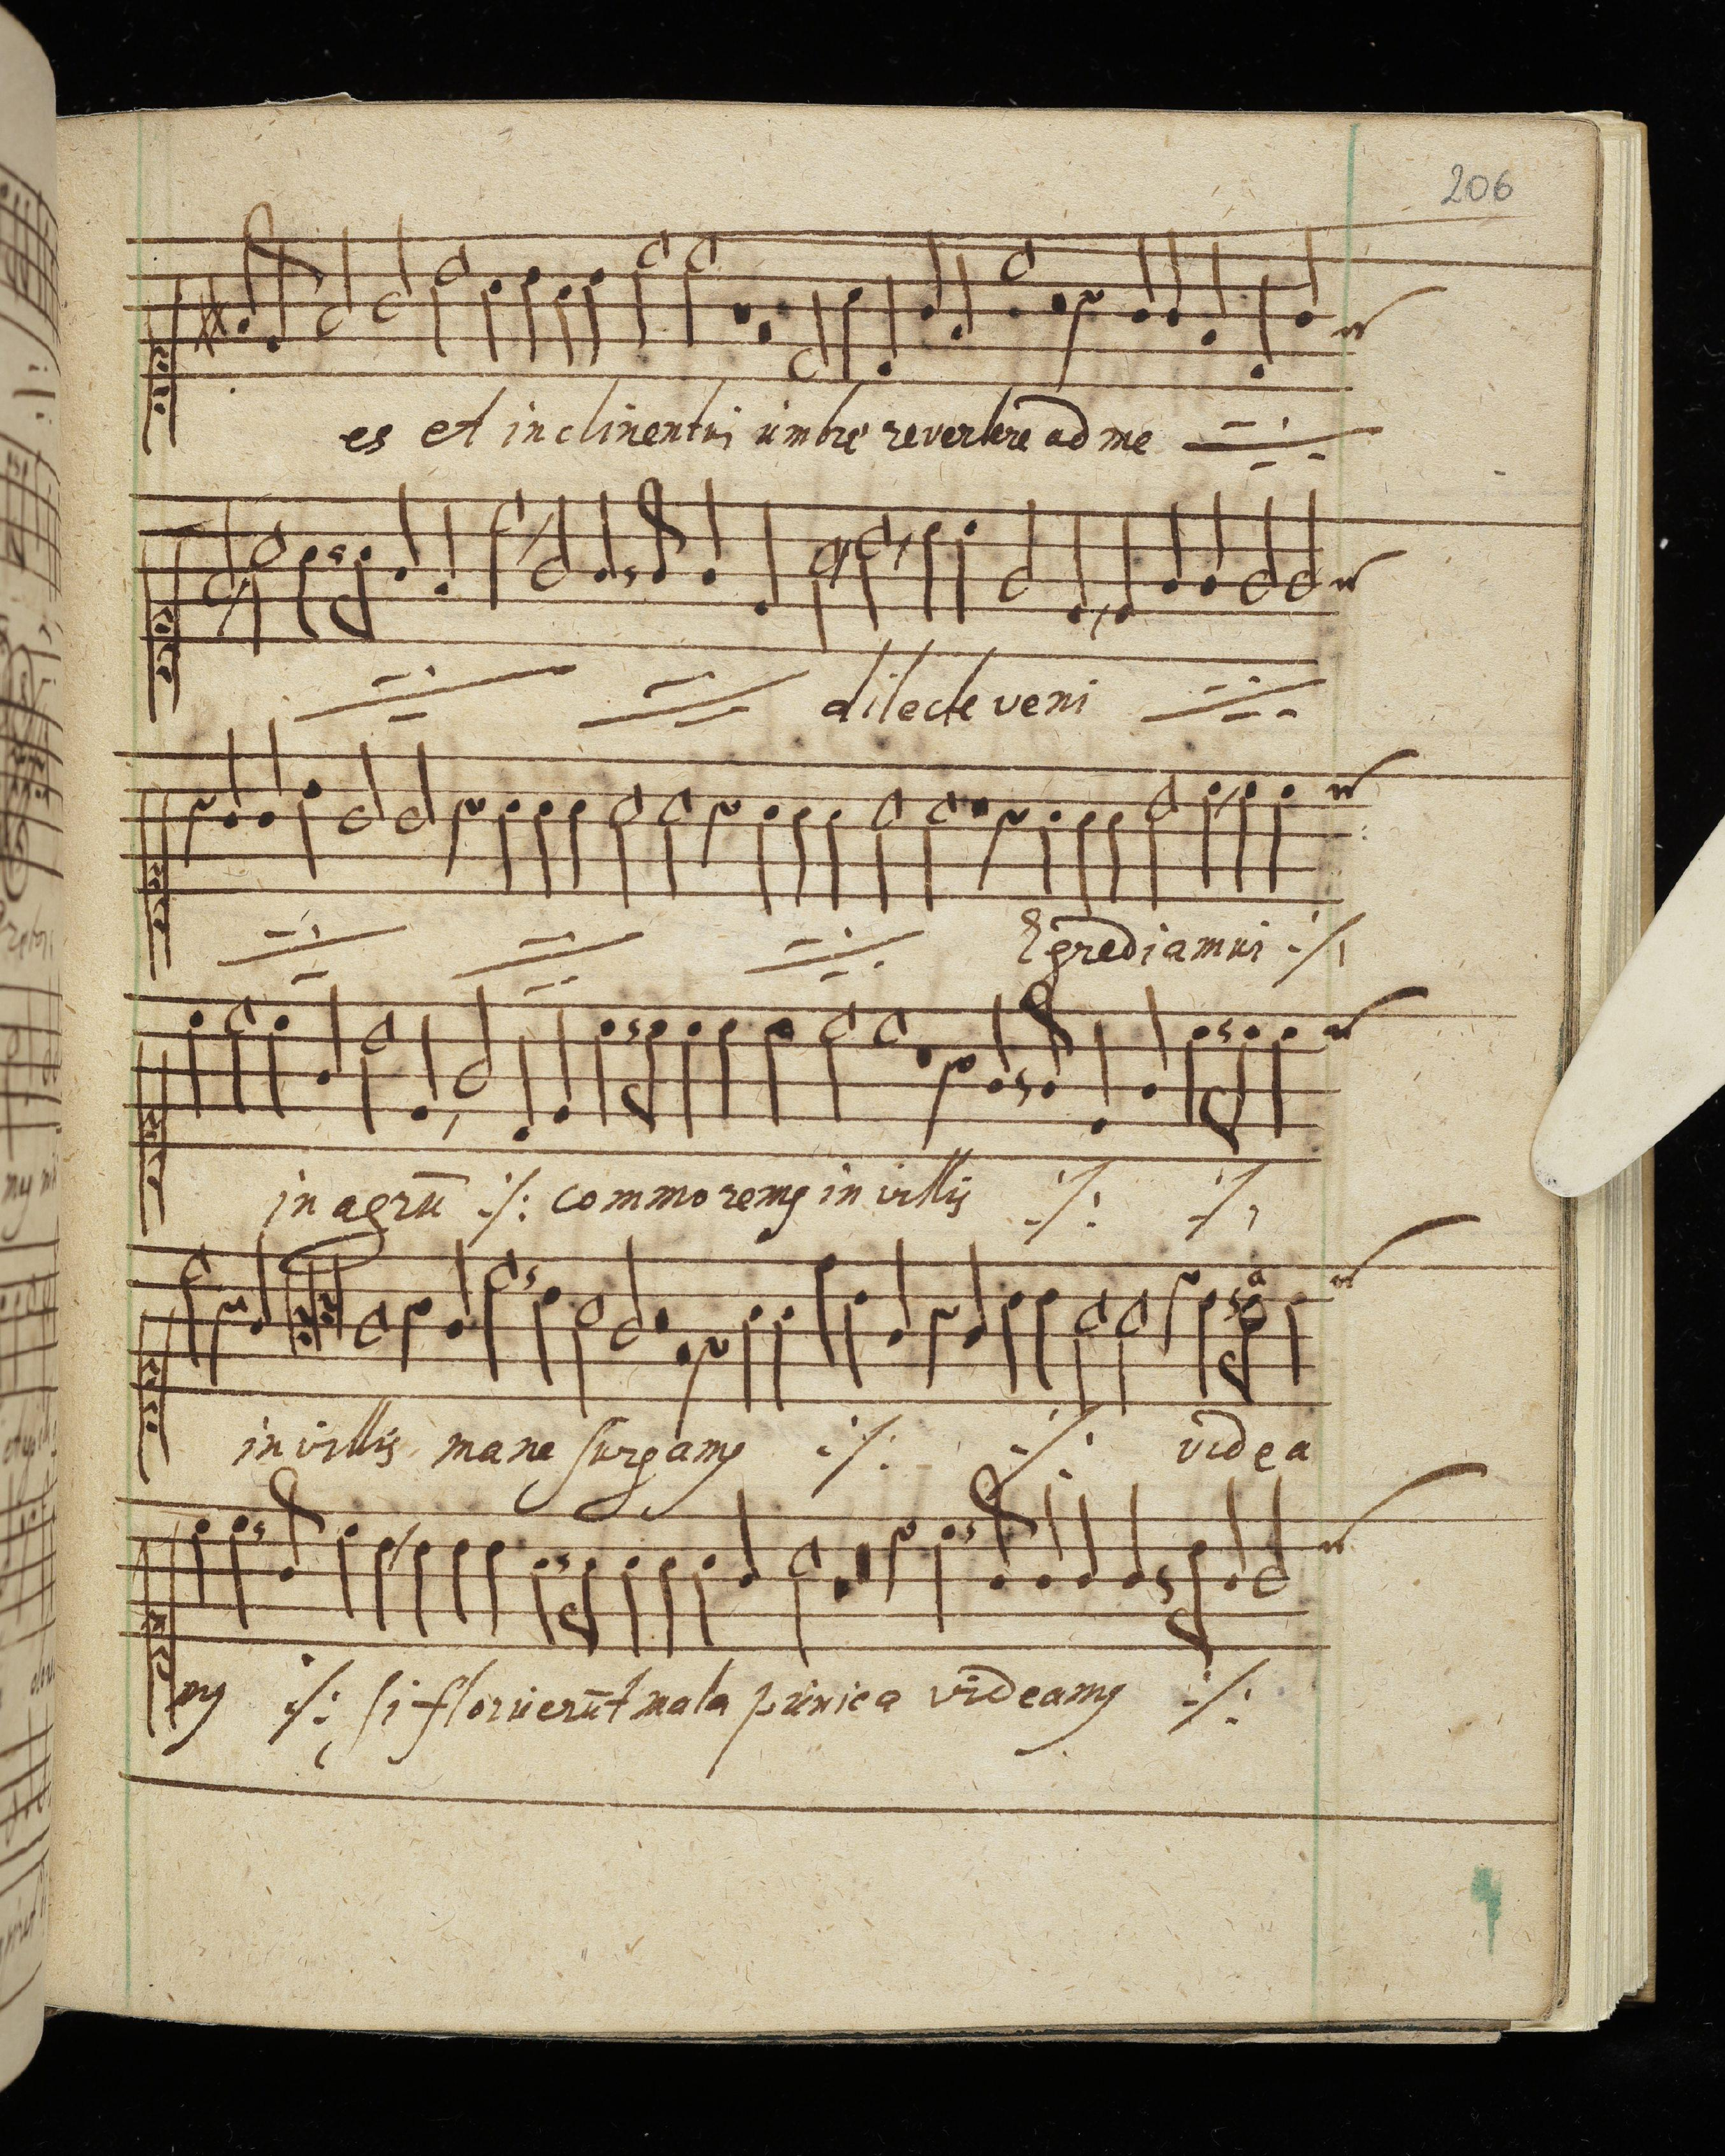 206
es et inclinentur umbre revertere ad me
dilecte veni
Egrediamur ./.
in agrū ./: commoremꝯ in villis ./: ./.
in villis mane surgamꝯ ./: ./: videa
mꝯ ./: si floruerūt mala punica videamꝯ ./: